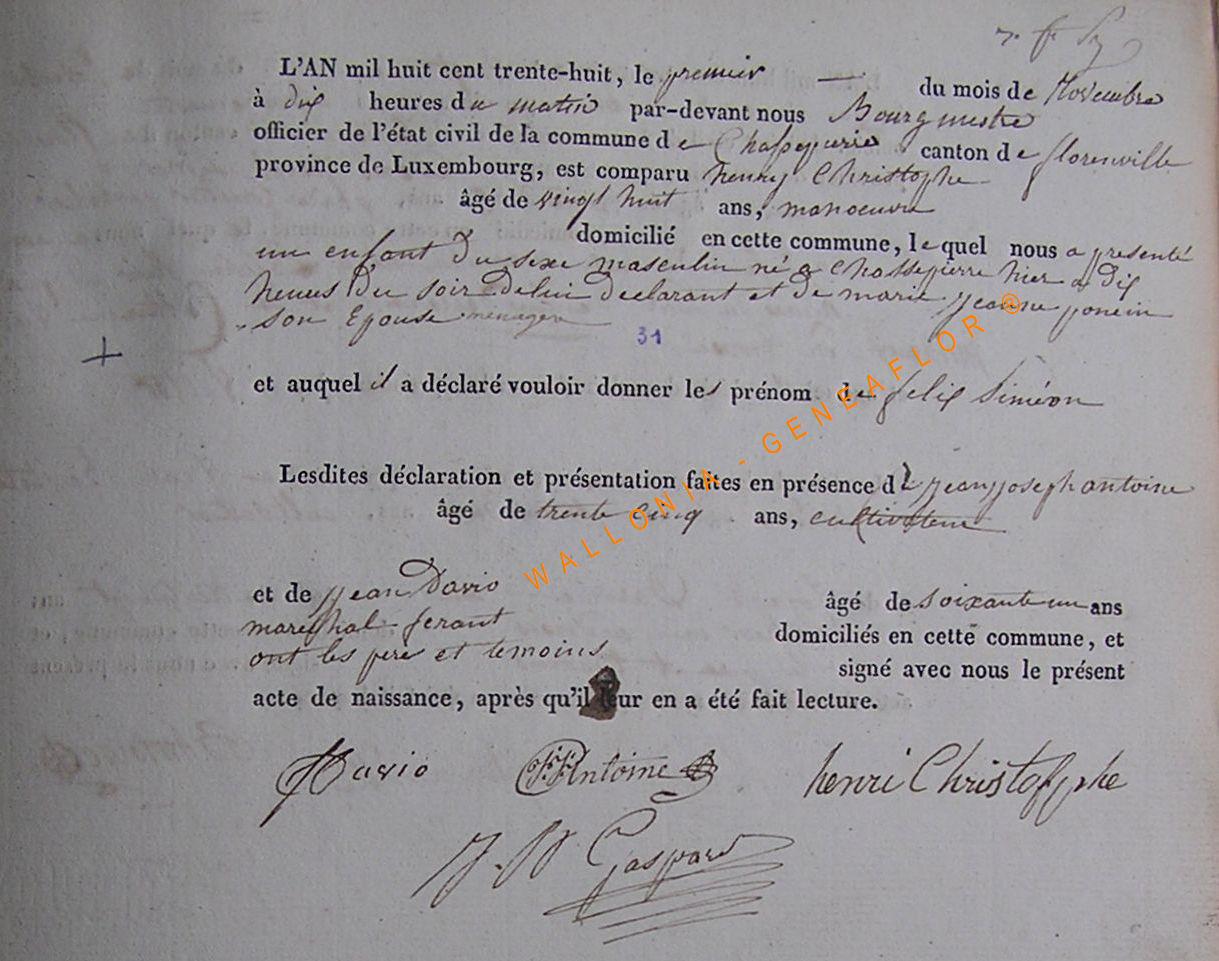 L'AN mil huit cent trente-huit, le premier — du mois de Novembre
à dix heures du matin par-devant nous Bourgmestre
officier de l'état civil de la commune de Chassepierre canton de florenville
province de Luxembourg, est comparu henry Christophe
âgé de vingt huit ans, manoeuvre
domicilié en cette commune, lequel nous a presenté
un enfant du sexe masculin né a Chassepierre hier a dix
heures du soir de lui declarant et de marie jeanne poncin
son Epouse menagere
31
et auquel il a déclaré vouloir donner les prénom de felix Siméon
Lesdites déclaration et présentation faites en présence de jean joseph antoine
âgé de trente cinq ans, cultivateur
et de jean Davio âgé de soixante un ans
marechal ferant domiciliés en cette commune, et
ont les pere et temoins signé avec nous le présent
acte de naissance, après qu'il leur en a été fait lecture.
JDavio JJAntoine henri Christophe
Gaspard
WALLONIA - GENEAFLOR ®